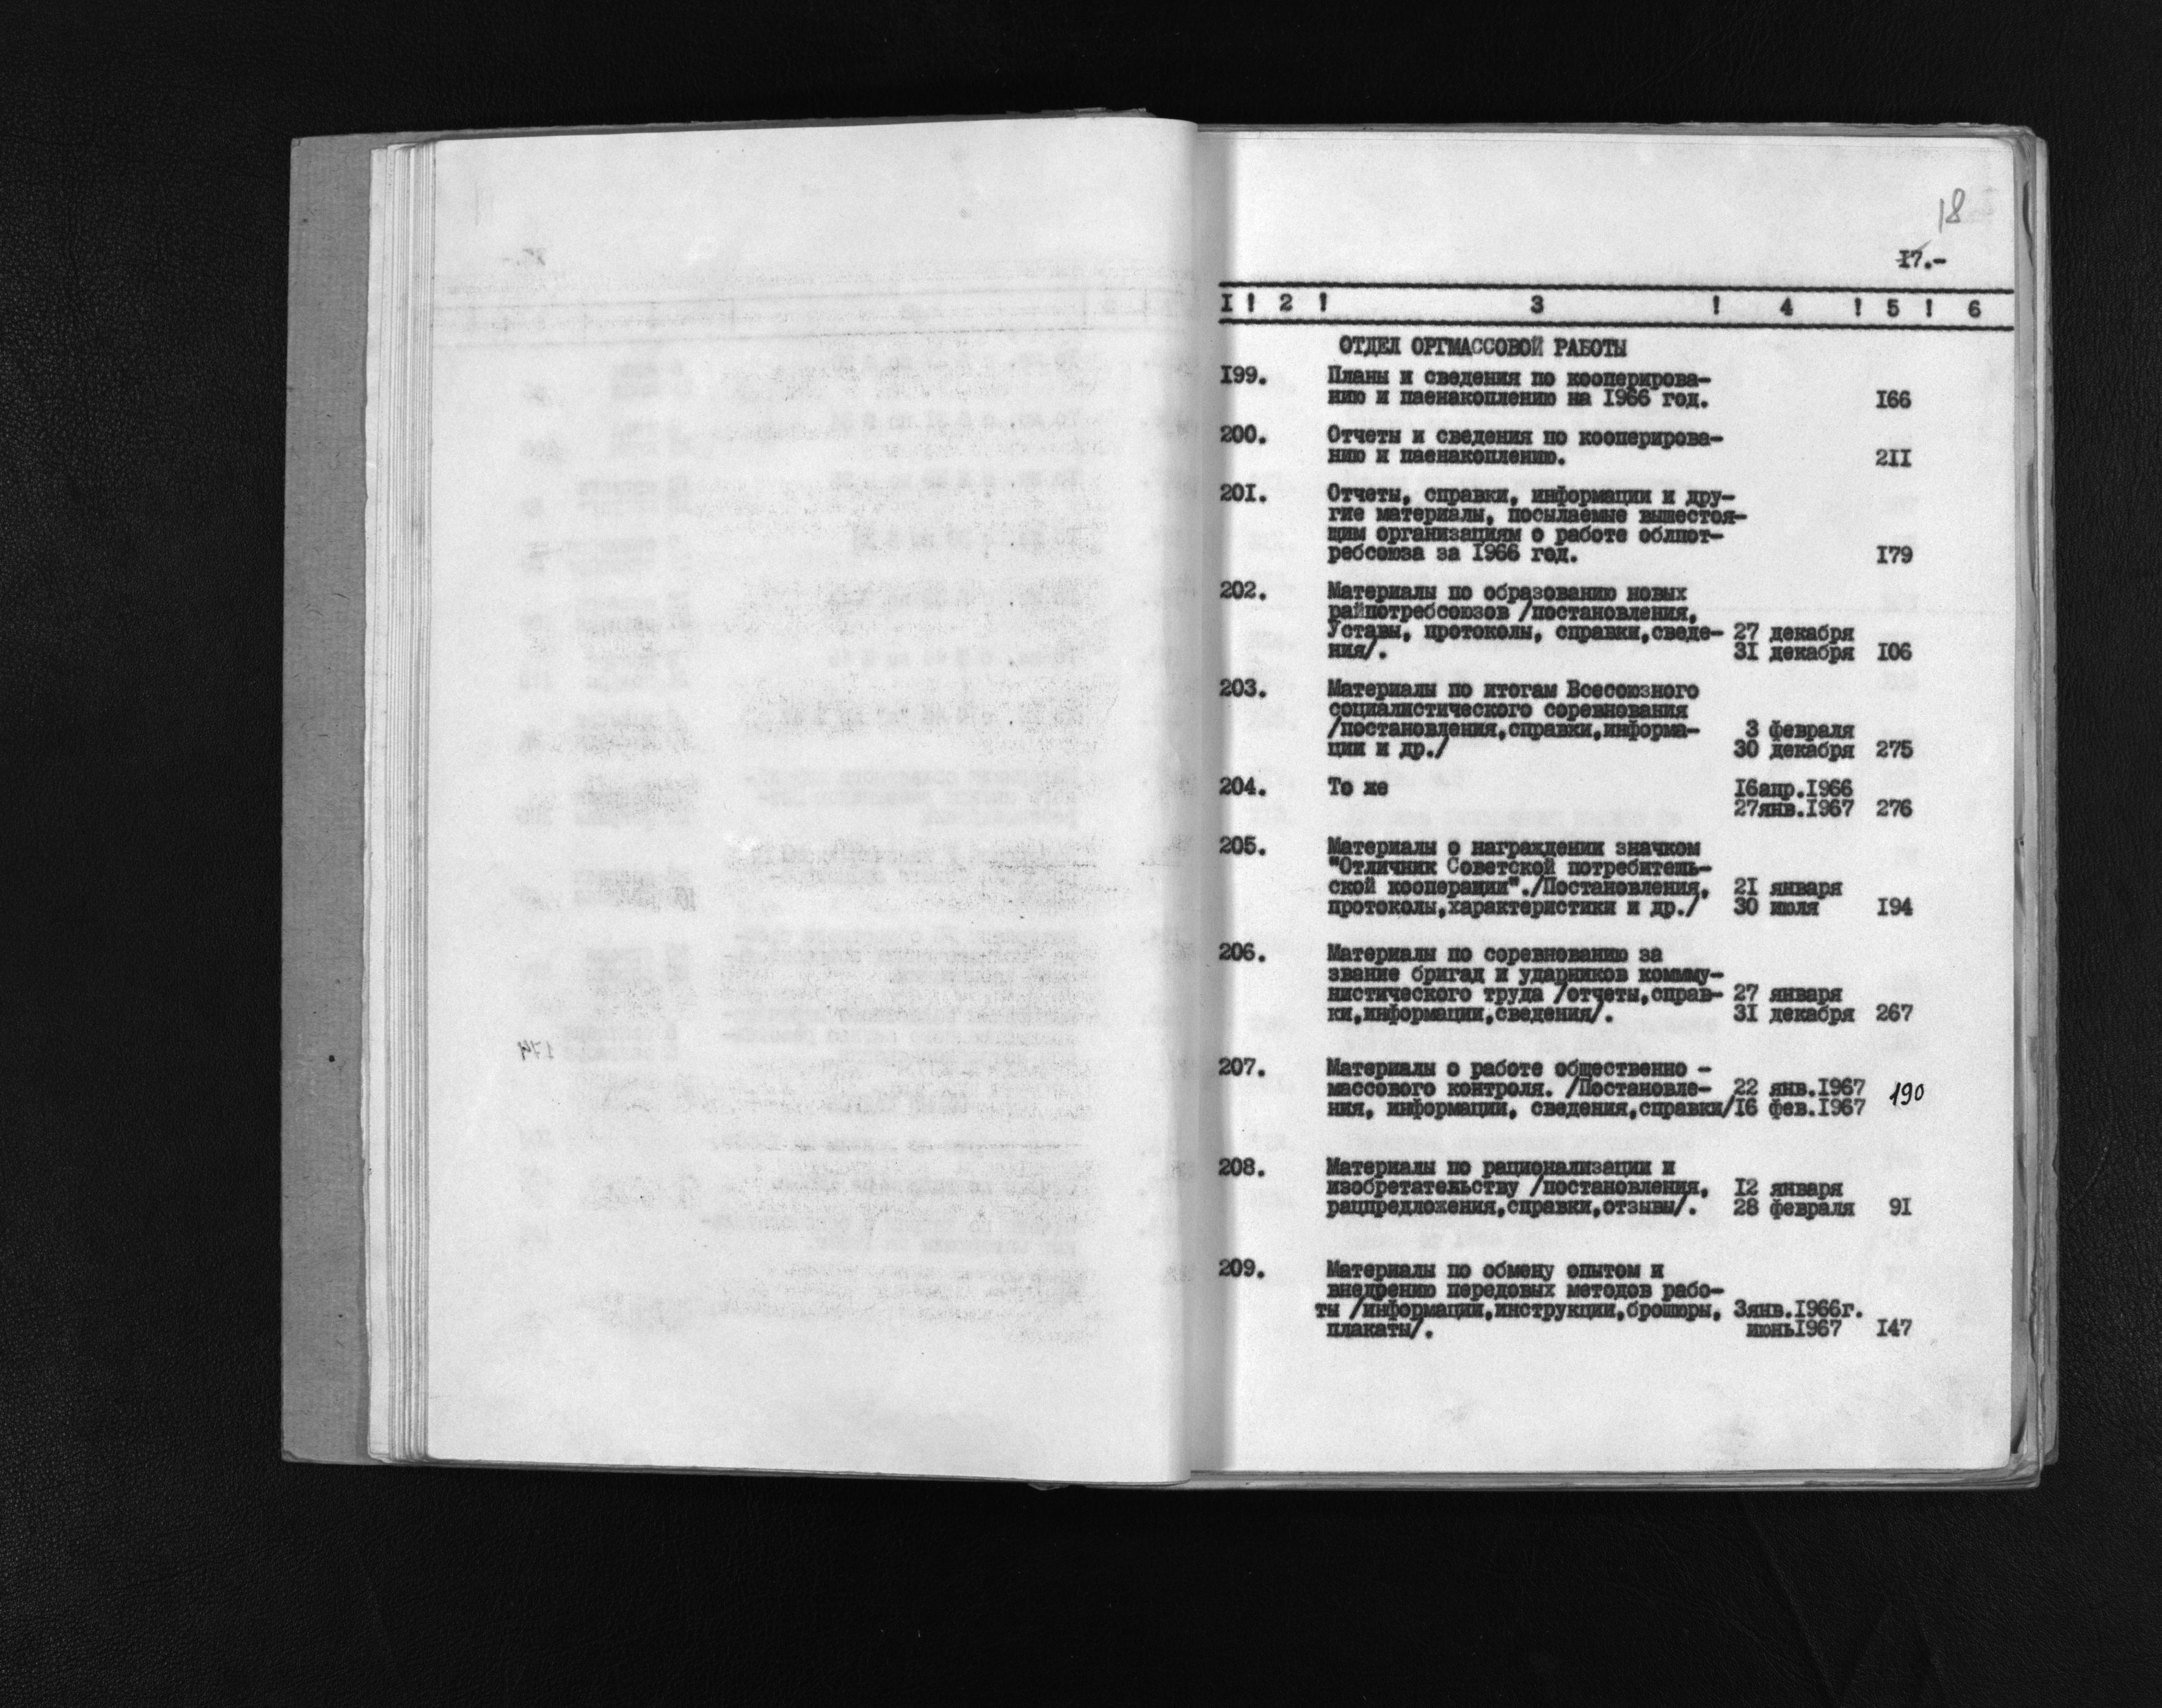 18
17.-
I ! 2 ! 3 ! 4 ! 5 ! 6
ОТДЕЛ ОРГМАССОВОЙ РАБОТЫ
199. Планы и сведения по кооперирова-
нию и паенакоплению на 1966 год. 166
200. Отчеты и сведения по кооперирова-
нию и паенакоплению. 211
201. Отчеты, справки, информации и дру-
гие материалы, посылаемые вышестоя-
щим организациям о работе облпот-
ребсоюза за 1966 год. 179
202. Материалы по образованию новых
райпотребсоюзов /постановления,
Уставы, протоколы, справки,сведе- 27 декабря
ния/. 31 декабря 106
203. Материалы по итогам Всесоюзного
социалистического соревнования
/постановления,справки,информа- 3 февраля
ции и др./ 30 декабря 275
204. То же 16апр.1966
27янв.1967 276
205. Материалы о награждении значком
"Отличник Советской потребитель-
ской кооперации"./Постановления, 21 января
протоколы,характеристики и др./ 30 июля 194
206. Материалы по соревнованию за
звание бригад и ударников комму-
нистического труда /отчеты,справ- 27 января
ки,информации,сведения/. 31 декабря 267
207. Материалы о работе общественно -
массового контроля. /Постановле- 22 янв.1967
ния, информации, сведения,справки/16 фев.1967 190
208. Материалы по рационализации и
изобретательству /постановления, 12 января
рацпредложения,справки,отзывы/. 28 февраля 91
209. Материалы по обмену опытом и
внедрению передовых методов рабо-
ты /информации,инструкции,брошюры, 3янв.1966г.
плакаты/. июнь1967 147